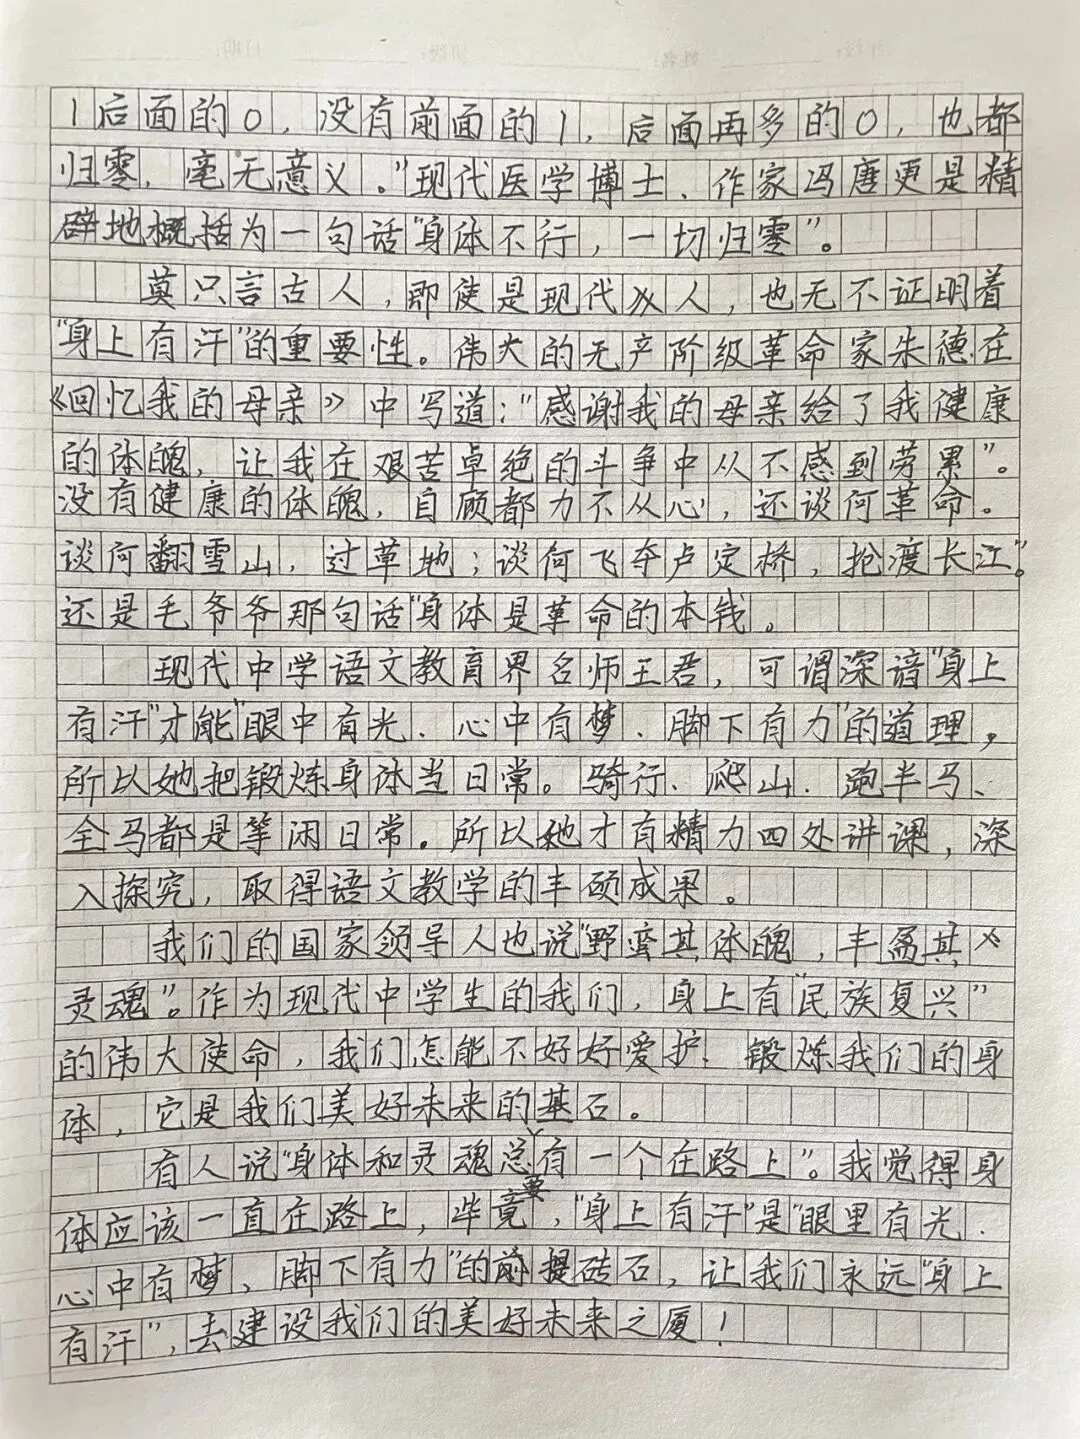 1后面的0，没有前面的1，后面再多的0，也都
归零，毫无意义。”现代医学博士、作家冯唐更是精
辟地概括为一句话“身体不行，一切归零”。
莫只言古人，即使是现代人，也无不证明着
“身上有汗”的重要性。伟大的无产阶级革命家朱德在
《回忆我的母亲》中写道：“感谢我的母亲给了我健康
的体魄，让我在艰苦卓绝的斗争中从不感到劳累”。
没有健康的体魄，自顾都力不从心，还谈何革命。
谈何翻雪山，过草地；谈何飞夺卢定桥，抢渡长江”。
还是毛爷爷那句话“身体是革命的本钱。
现代中学语文教育界名师王君，可谓深谙“身上
有汗”，才能“眼中有光、心中有梦、脚下有力”的道理，
所以她把锻炼身体当日常。骑行、爬山、跑半马、
全马都是等闲日常。所以她才有精力四处讲课，深
入探究，取得语文教学的丰硕成果。
我们的国家领导人也说“野蛮其体魄，丰盈其
灵魂”。作为现代中学生的我们，身上有“民族复兴”
的伟大使命，我们怎能不好好爱护、锻炼我们的身
体，它是我们美好未来的基石。
有人说“身体和灵魂总要有一个在路上”。我觉得身
体应该一直在路上，毕竟，“身上有汗”是“眼里有光、
心中有梦、脚下有力”的前提砖石，让我们永远“身上
有汗”，去建设我们的美好未来之厦！